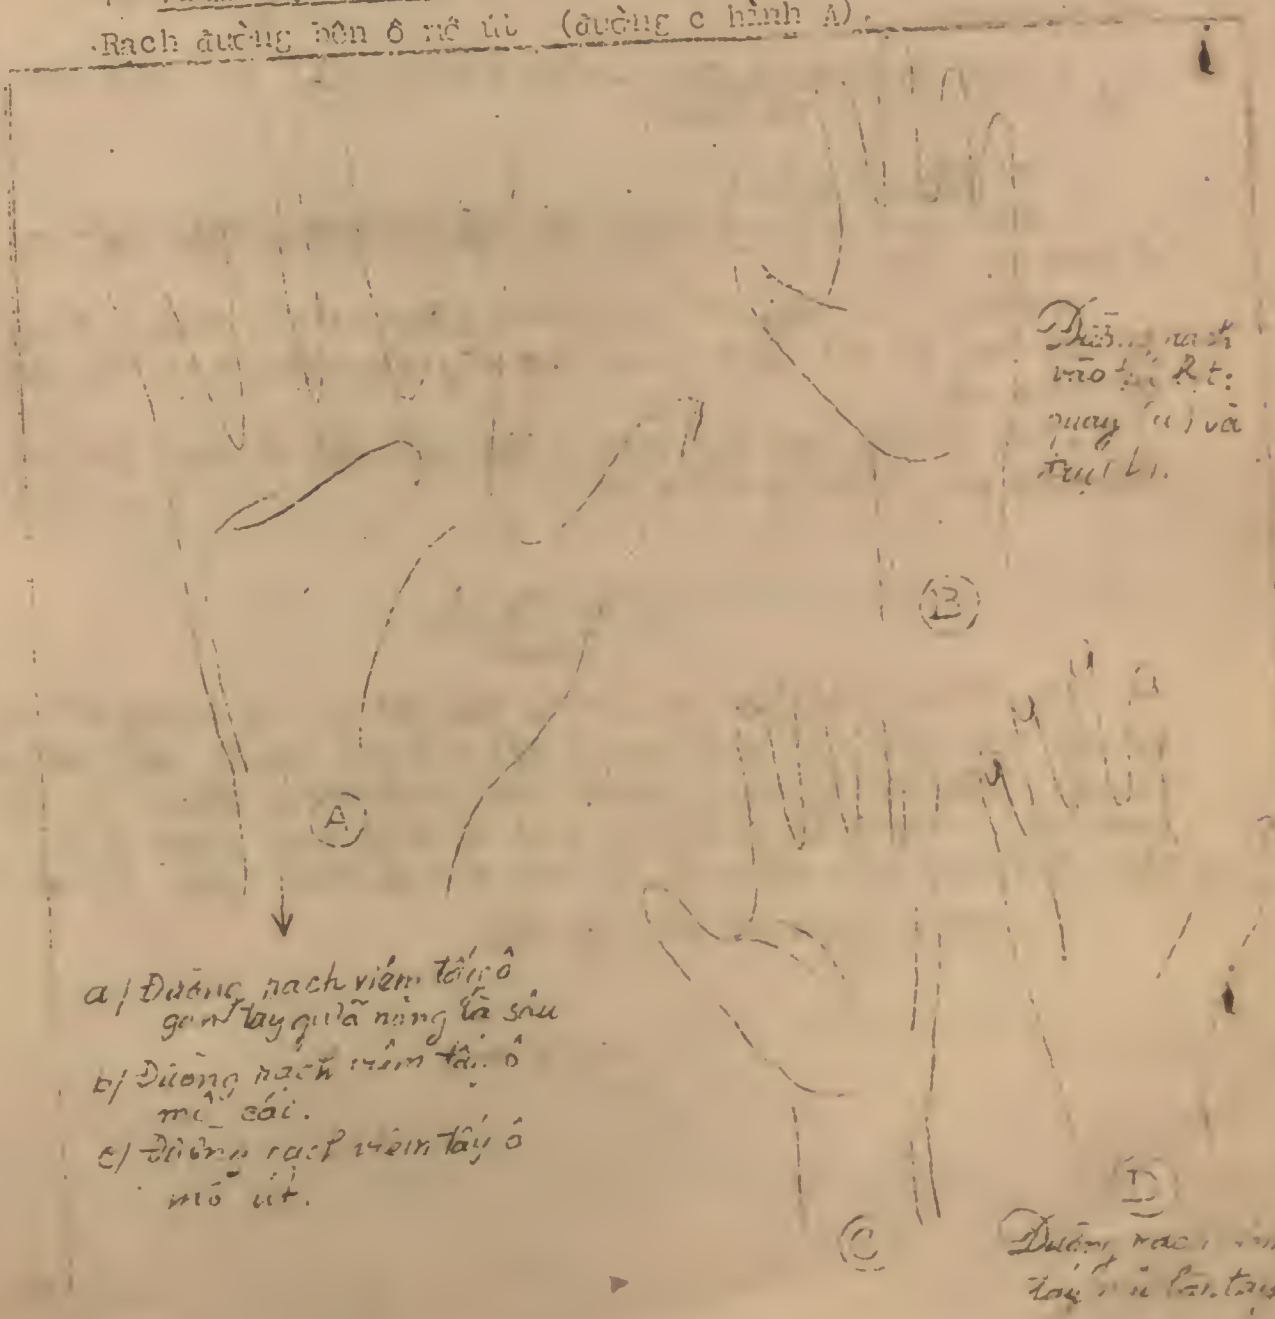 Rạch đường bên ô mô út (đường c hình A).
Đường rạch
vào
quay (a) và
trụ (b).
B
A
a/ Đường rạch viêm tấy ô
gan tay giữa nông và sâu
b/ Đường rạch viêm tấy ô
mô cái.
c/ Đường rạch viêm tấy ô
mô út.
C
D
Đường rạch
tấy